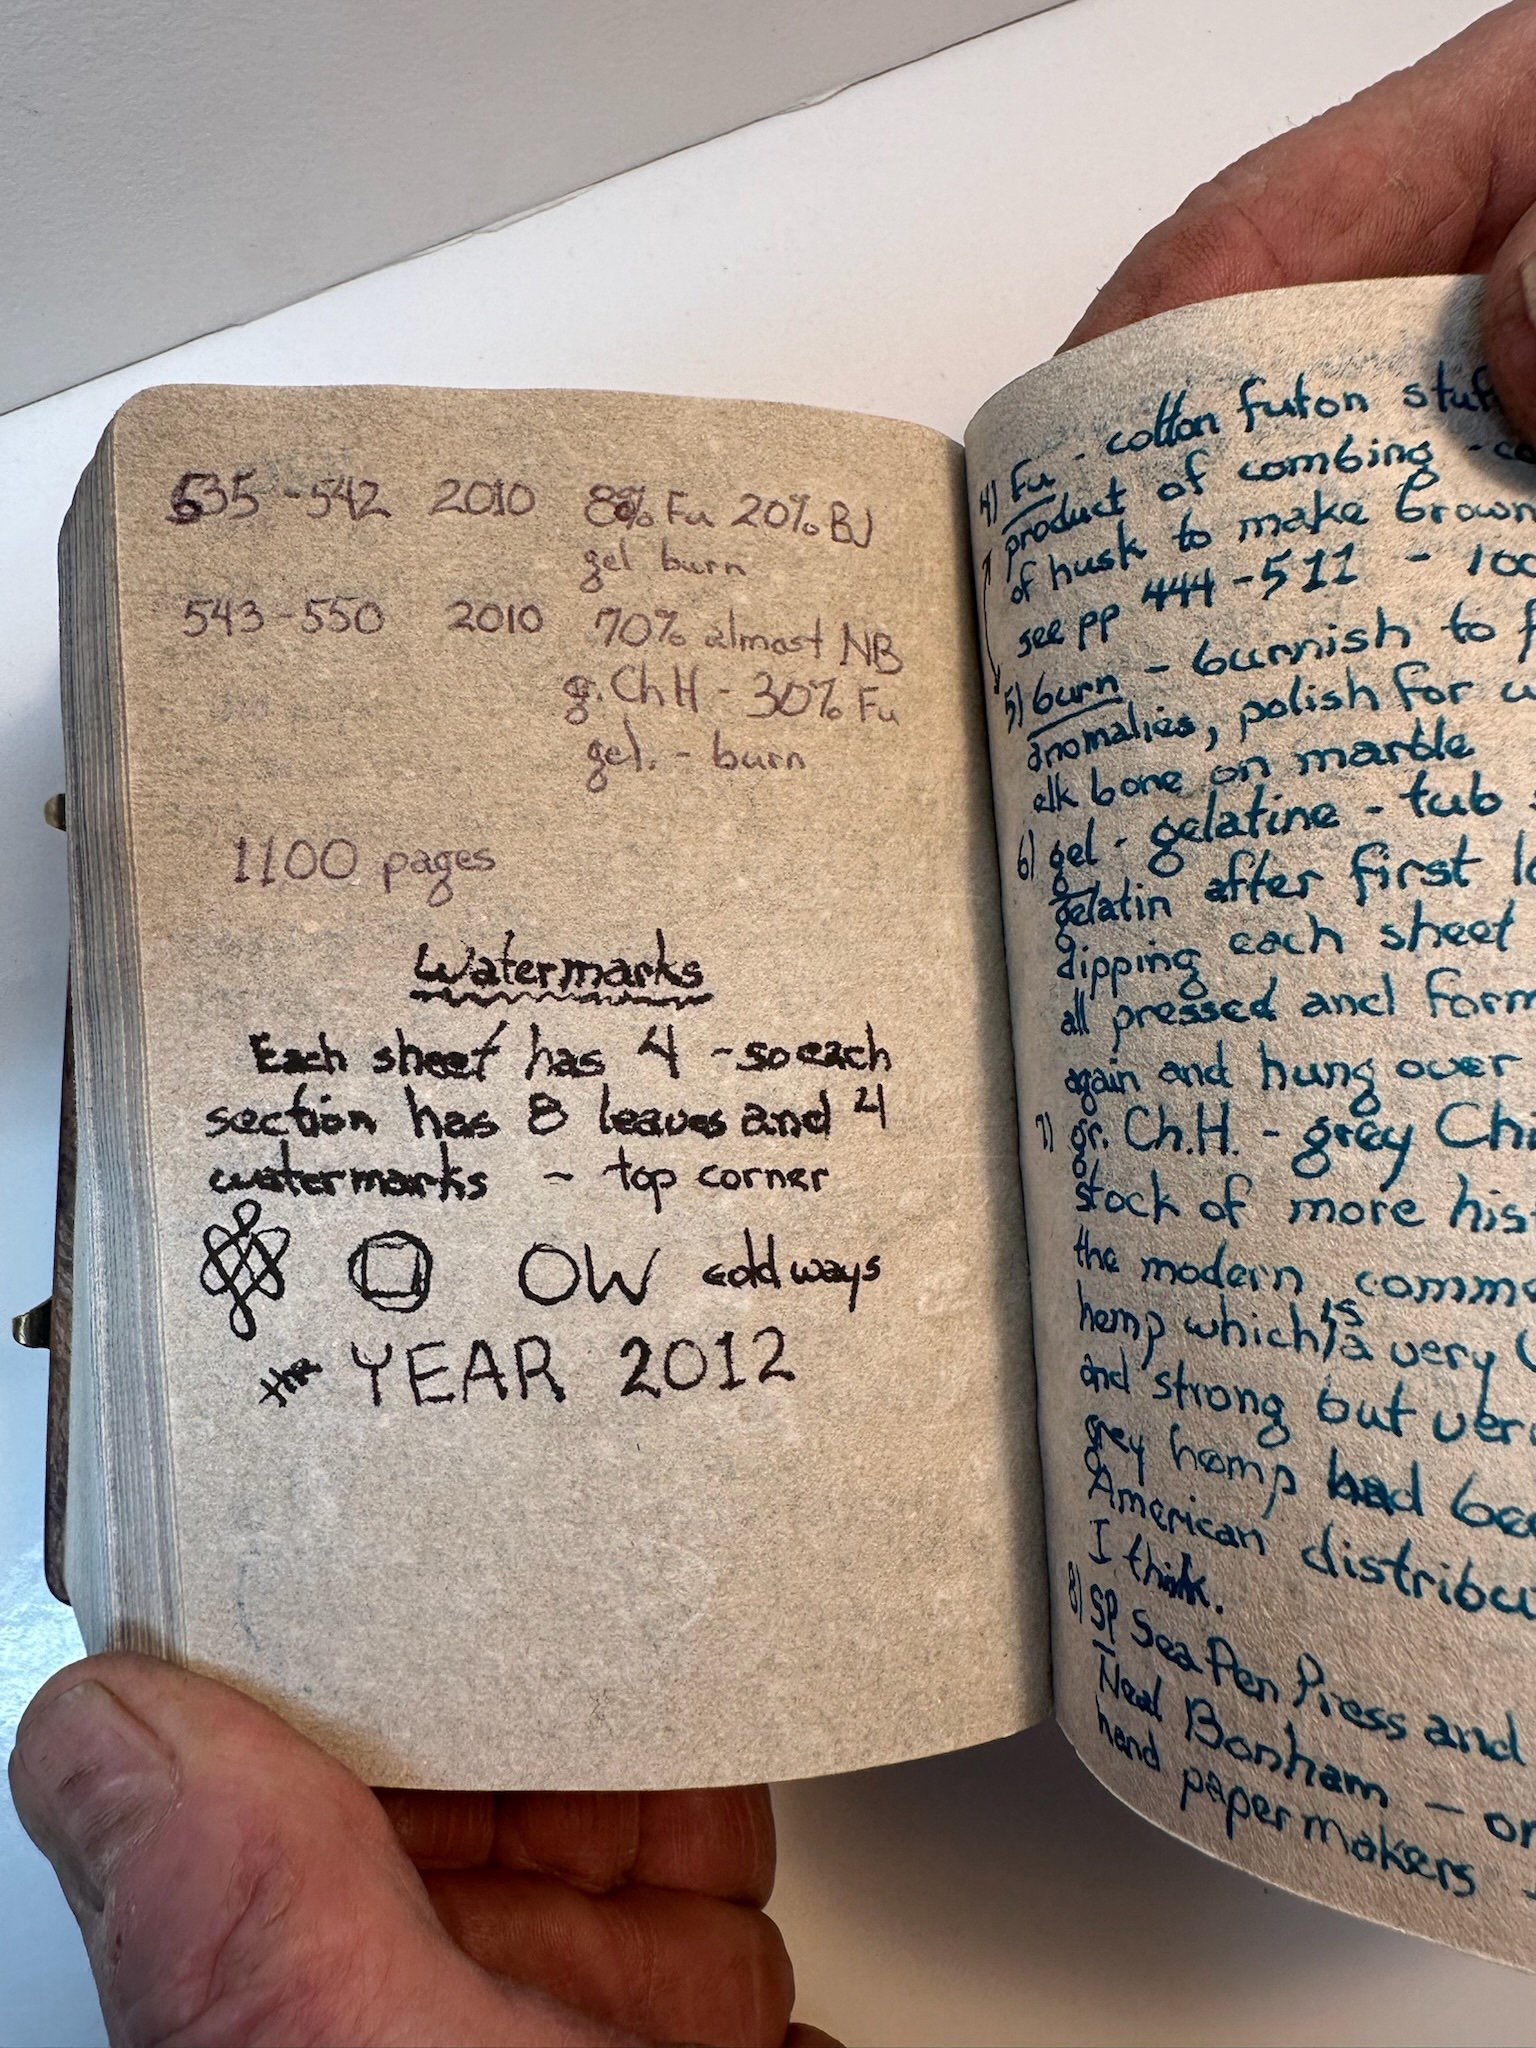 535-542 2010 80% Fu 20% BJ
gel burn
543-550 2010 70% almost NB
g. Ch H - 30% Fu
gel. - burn
1100 pages
Watermarks
Each sheet has 4 - so each
section has 8 leaves and 4
watermarks - top corner
OW oldways
the YEAR 2012
4) Fu - cotton futon
product of combing -
of husk to make brown
see pp 444-511 - 100
5) burn - burnish to
anomalies, polish for
elk bone on marble
6) gel - gelatine - tub
gelatin after first
dipping each sheet
all pressed and
again and hung over
7) gr. Ch.H. - grey
stock of more
the modern
hemp which is a very
and strong but
grey hemp had
American
I think.
8) SP Sea Pen Press and
Neal Bonham -
hand papermakers